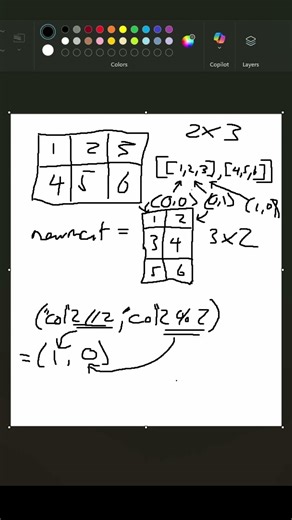 Colors
Copilot
Layers
2x3
1 2 3
[[1,2,3],[4,5,6]]
4 5 6
(0,0) (0,1) (1,0)
newmat =
1 2
3 4
3x2
5 6
("col"2//2,"col"2%2)
=(1,0)